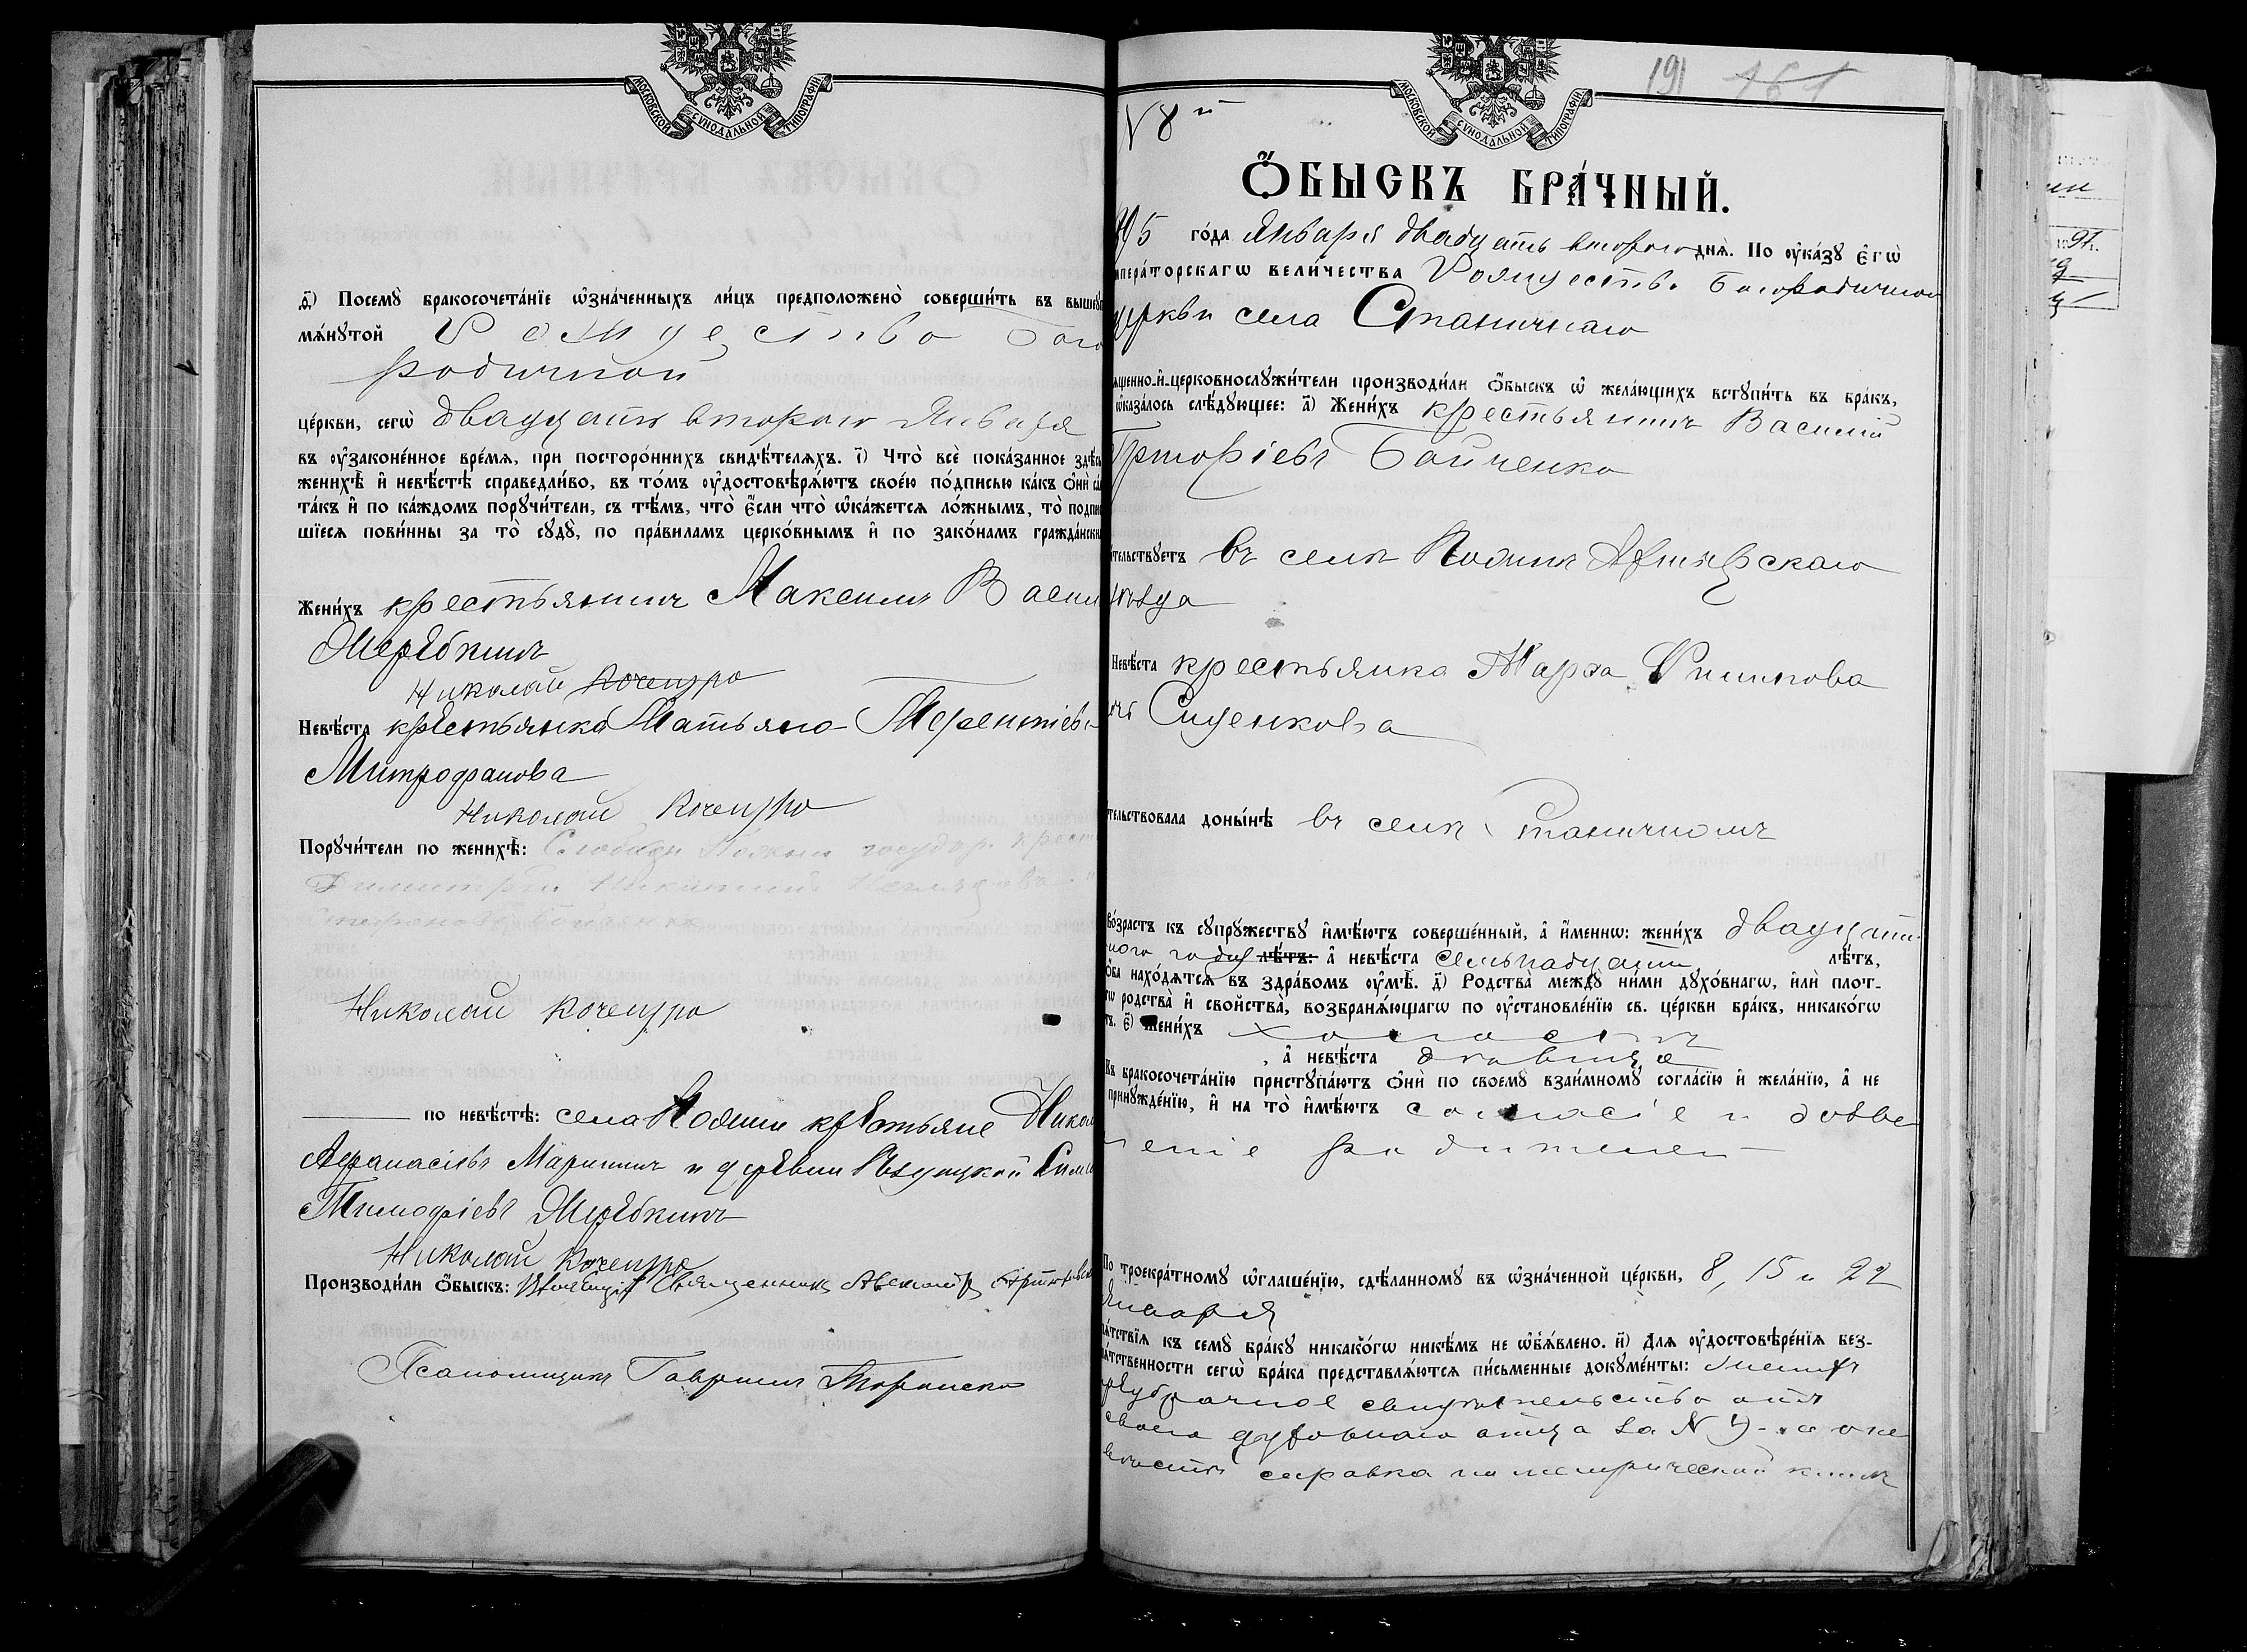 МОСКОВСКОЙ СѴНОДАЛЬНОЙ ТИПОГРАФІИ
ѳ҃) Посемꙋ̀ бракосочета́нїе ѡ҆зна́ченныхъ ли́цъ предположено̀ соверши́ть въ вышеꙋп
мѧ́нꙋтой Рождество Бого
родичной
це́ркви, сегѡ̀ двадцать второго Января
въ ᲂу҆законе́нное вре́мѧ, при посторо́ннихъ свидѣ́телѧхъ. і҃) Что̀ всѐ пока́занное здѣ́сь
женихѣ̀ и҆ невѣ́стѣ справедли́во, въ то́мъ ᲂу҆достовѣрѧ́ютъ свое́ю по́дписью ка́къ ѻ҆нѝ са
та́къ и҆ по ка́ждомъ порꙋчи́тели, съ тѣ́мъ, что̀ є҆́сли что̀ ѡ҆ка́жетсѧ ло́жнымъ, то̀ подпи
шїесѧ пови́нны за то̀ сꙋдꙋ̀, по пра́виламъ церко́внымъ и҆ по зако́намъ гражда́нски
Жени́хъ крестьянинъ Максимъ Васил
Жеребкинъ
Николай Кочещро
Невѣ́ста крестьянка Татьяна Терентіев
Митрофанова
Николай Кочещро
Порꙋчи́тели по женихѣ̀: Слободы государ. крест
Димитрій Никитинъ
Николай Кочещро
по невѣ́стѣ: села крестьяне Никол
Афанасіевъ Маринин и деревни
Тимофіевъ Жеребкинъ
Николай Кочещро
Производи́ли ѻ҆́быскъ: Священникъ
Псаломщикъ Гавріилъ
МОСКОВСКОЙ СѴНОДАЛЬНОЙ ТИПОГРАФІИ
191 161
N 8й
Ѻ҆́БЫСКЪ БРА́ЧНЫЙ.
895 го́да Января двадцать второго днѧ̀. По ᲂу҆ка́зꙋ є҆гѡ̀
мпера́торскагѡ вели́чества Рождество Богородичной
церкви села Станичнаго
ѧщенно-и҆-церковнослꙋжи́тели производи́ли ѻ҆́быскъ ѡ҆ жела́ющихъ встꙋпи́ть въ бра́къ,
ѡ҆каза́лось слѣ́дꙋющее: а҃) Жени́хъ крестьянинъ Василій
Григоріевъ Бойченко
тельствꙋетъ въ селѣ
уѣзда
Невѣ́ста крестьянка Марѳа Филипова
Сиденкова
тельствовала доны́нѣ въ селѣ Станичномъ
во́зрастъ къ сꙋпрꙋ́жествꙋ и҆мѣ́ютъ соверше́нный, а҆ и҆́меннѡ: жени́хъ двадцати
ного году лѣ́тъ: а҆ невѣ́ста семьнадцати лѣ́тъ,
ѻ҆́ба нахо́дѧтсѧ въ здра́вомъ ᲂу҆мѣ̀. д҃) Родства̀ междꙋ̀ ни́ми дꙋхо́внагѡ, и҆лѝ плот-
гѡ родства̀ и҆ свойства̀, возбранѧ́ющагѡ по ᲂу҆становле́нїю св. це́ркви бра́къ, никако́гѡ
тъ. є҃) Жени́хъ холостъ
, а҆ невѣ́ста дѣвица
Къ бракосочета́нїю пристꙋпа́ютъ ѻ҆нѝ по своемꙋ̀ взаи́мномꙋ согла́сїю и҆ жела́нїю, а҆ не
принꙋжде́нїю, и҆ на то̀ и҆мѣ́ютъ согласіе и дозво
леніе родителей
По троекра́тномꙋ ѡ҆глаше́нїю, сдѣ́ланномꙋ въ ѡ҆зна́ченной це́ркви, 8, 15 и 22
Января
ѧ́тствїѧ къ семꙋ̀ бра́кꙋ никако́гѡ никѣ́мъ не ѡ҆б̾ѧ́влено. и҃) Длѧ ᲂу҆достовѣре́нїѧ без-
ѧ́тственности сегѡ̀ бра́ка представлѧ́ютсѧ пи́сьменные докꙋме́нты: женихъ
предбрачное свидѣтельство отъ
своего духовнаго отца за N
невѣсты справка по метрической книгѣ